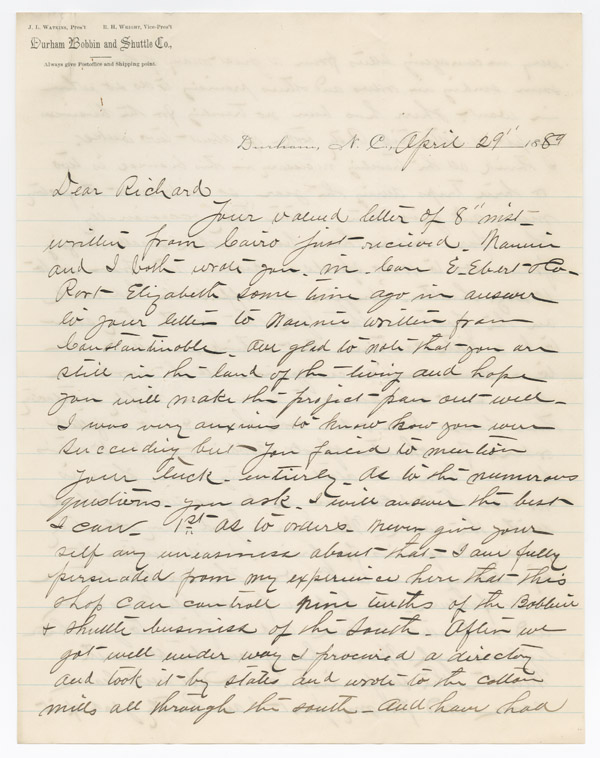 J. L. Watkins, Pres't R. H. Wright, Vice-Pres't
Durham Bobbin and Shuttle Co.,
Always give Postoffice and Shipping point.
Durham, N. C., April 29" 1889
Dear Richard
Your valued letter of 8" inst
written from Cairo just received. Nannie
and I both wrote you. in Care E. Ebert & Co
Port Elizabeth some time ago in answer
to your letter to Nannie written from
Constantinoble. Am glad to note that you are
still in the land of the living and hope
you will make the project pan out well.
I was very anxious to know how you were
succeeding but you failed to mention
your luck entirely. As to the numerous
questions you ask. I will answer the best
I can. 1st As to orders. Never give your
self any uneasiness about that. I am fully
persuaded from my experience here that this
shop can controll nine tenths of the Bobbin
& shuttle business of the South. After we
got well under way I procured a directory
and took it by states and wrote to the cotton
mills all through the south. And have had